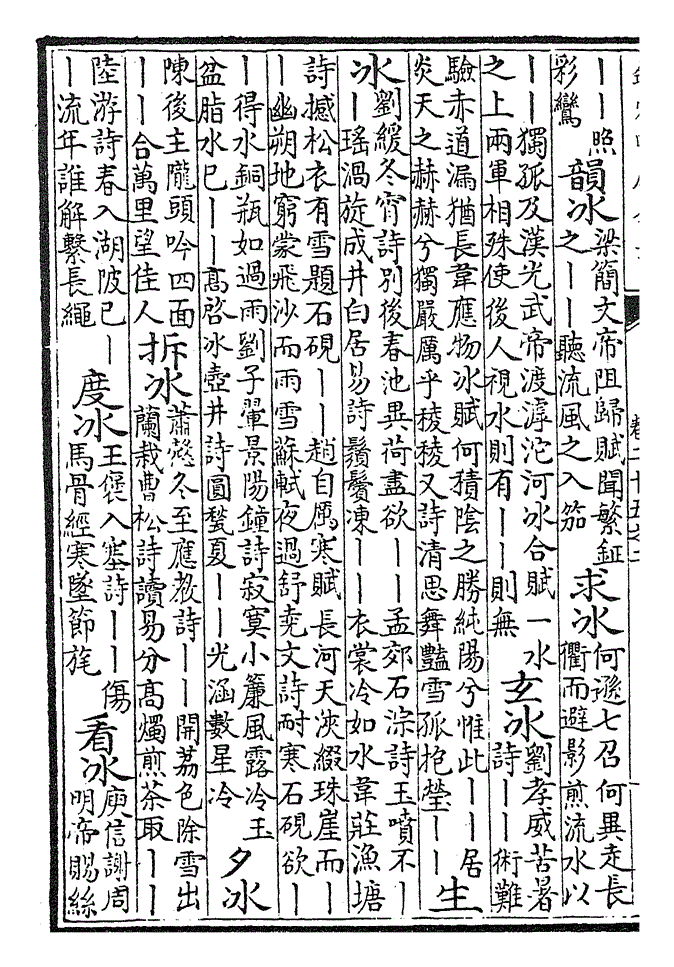 ——照彩鸞韻冰梁簡文帝阻歸賦聞繁鉦之——聽流風之入笳求冰何遜七召何異走長衢而避影煎流水以
——獨孤及漢光武帝渡滹沱河冰合賦一水之上兩軍相殊使後人視水則有——則無玄冰劉孝威苦暑詩——術難
驗赤道漏猶長韋應物冰賦何積陰之勝純陽兮惟此——居炎天之赫赫兮獨嚴厲乎稜稜又詩清思舞豔雪孤抱瑩——生
冰劉緩冬宵詩別後春池異荷盡欲——孟郊石淙詩玉噴不——瑤渦旋成井白居易詩鬚鬢凍——衣裳冷如水韋莊漁塘
詩撼松衣有雪題石硯——趙自勵寒賦長河天浹綴珠崖而——幽朔地窮蒙飛沙而雨雪蘇軾夜過舒堯文詩耐寒石硯欲—
—得水銅瓶如過雨劉子翬景陽鐘詩寂寞小簾風露冷玉盆脂水已——高啓冰壺井詩圓甃夏——光涵數星冷夕冰
陳後主隴頭吟四面——合萬里望佳人拆冰蕭愨冬至應教詩——開荔色除雪出蘭栽曹松詩讀易分高燭煎茶取——
陸游詩春入湖陂已——流年誰解繫長繩度冰王褒入塞詩——傷馬骨經寒墜節旄看冰庾信謝周明帝賜絲